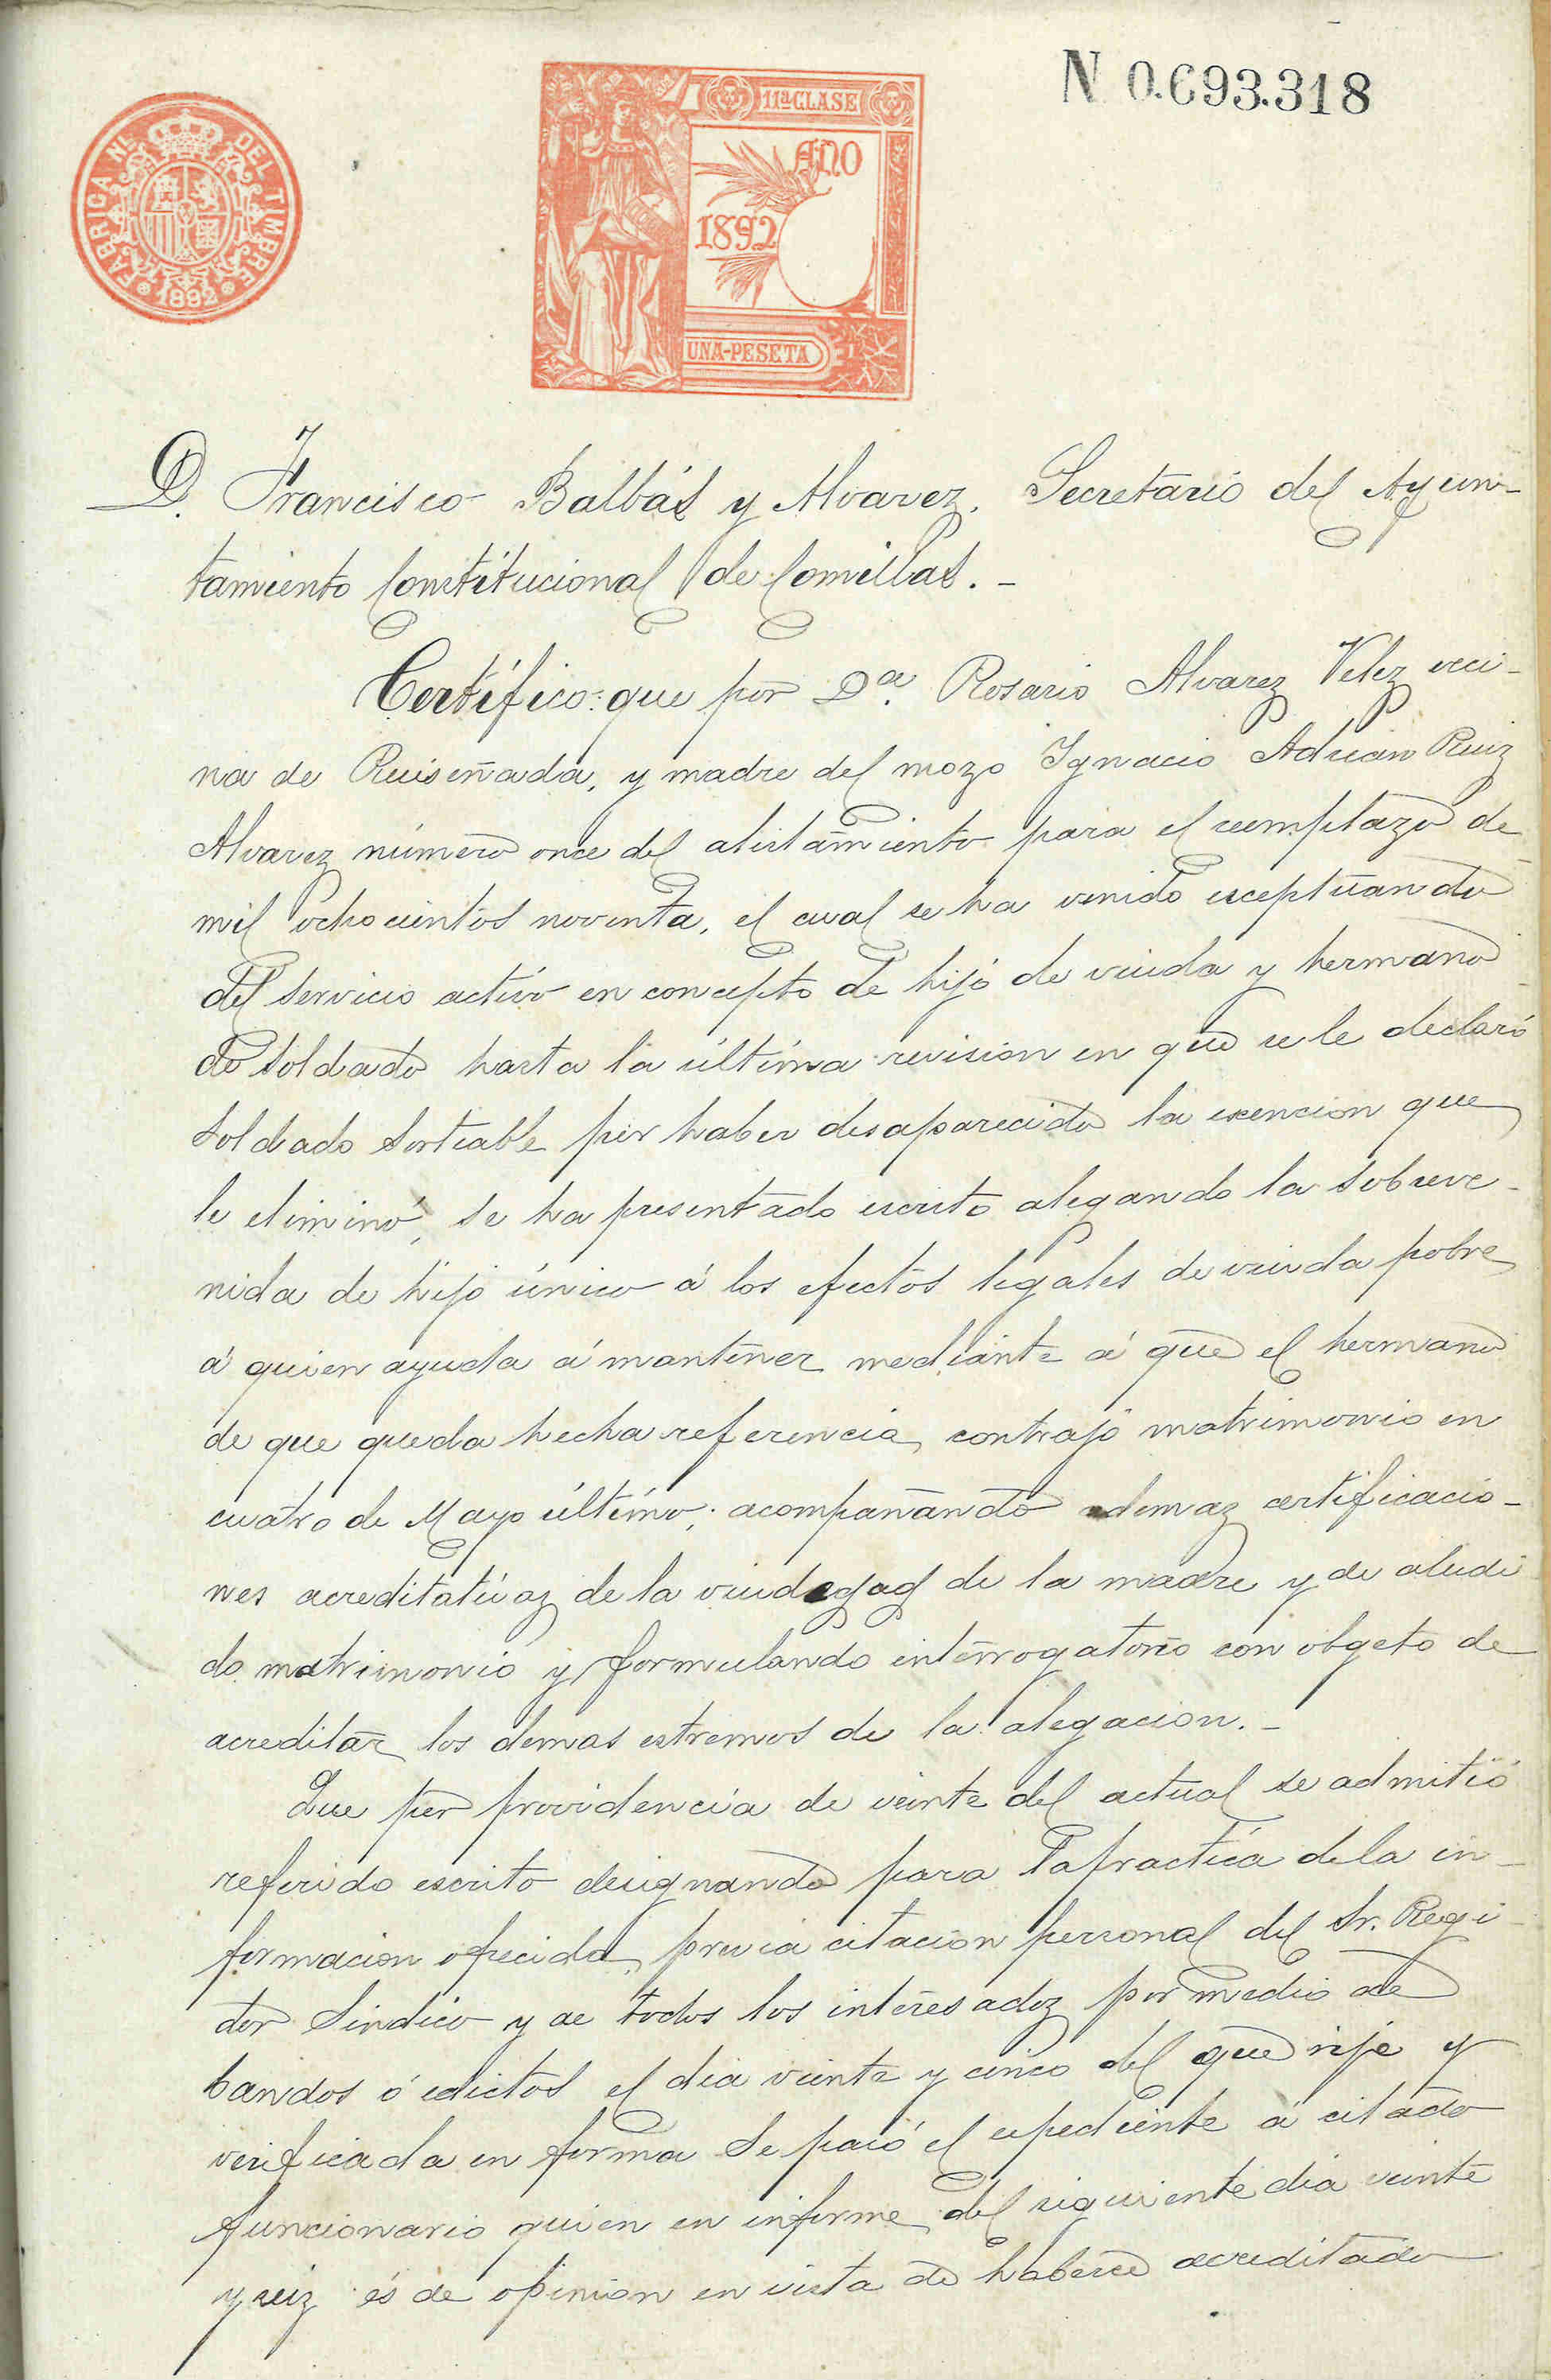 N 0.693.318
FABRICA N. DEL TIMBRE
1892
11ª CLASE
AÑO
1892
UNA-PESETA
D. Francisco Balbás y Alvarez, Secretario del Ayun-
tamiento Constitucional de Comillas.-
Certífico: que por Dª. Rosario Alvarez Velez veci-
na de Ruiseñada, y madre del mozo Ignacio Adrian Ruiz
Alvarez número once del alistamiento para el reemplazo de
mil ochocientos noventa, el cual se ha venido esceptuando
del servicio activo en concepto de hijo de viuda y hermano
de soldado hasta la última revision en que se le declaró
soldado sorteable por haber desaparecido la exencion que
le eliminó, se ha presentado escrito alegando la sobreve-
nida de hijo único á los efectos legales de viuda pobre
á quien ayuda á mantener mediante á que el hermano
de que queda hecha referencia, contrajo matrimonio en
cuatro de Mayo último; acompañando demaz certificacio-
nes acreditativaz de la viudedad de la madre y de aludi
do matrimonio y formulando interrogatorio con obgeto de
acreditar los demas estremos de la alegacion.-
Que por providencia de veinte del actual se admitió
referido escrito designando para la practica de la in-
formacion ofrecida, previa citacion personal del Sr. Regi
dor Sindico y de todos los interesadoz por medio de
bandos ó edictos el dia veinte y cinco del que rije y
verificada en forma se pasó el espediente á citado
funcionario quien en informe del siguiente dia veinte
y seiz és de opinion en vista de haberse acreditado